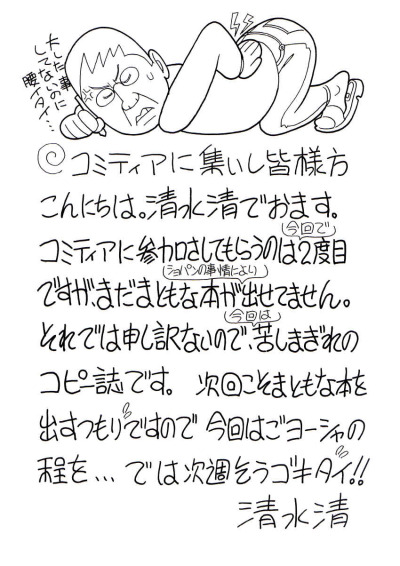 大した事
してないのに
腰イタイ…
コミティアに集いし皆様方
こんにちは。清水清でおます。
今回で
コミティアに参加さしてもらうのは2度目
ショパンの事情により
ですが、まだまともな本が出せてません。
今回は
それでは申し訳ないので、苦しまぎれの
コピー誌です。 次回こそまともな本を
出すつもりですので 今回はごヨーシャの
程を… では次週そうゴキタイ!!
清水清